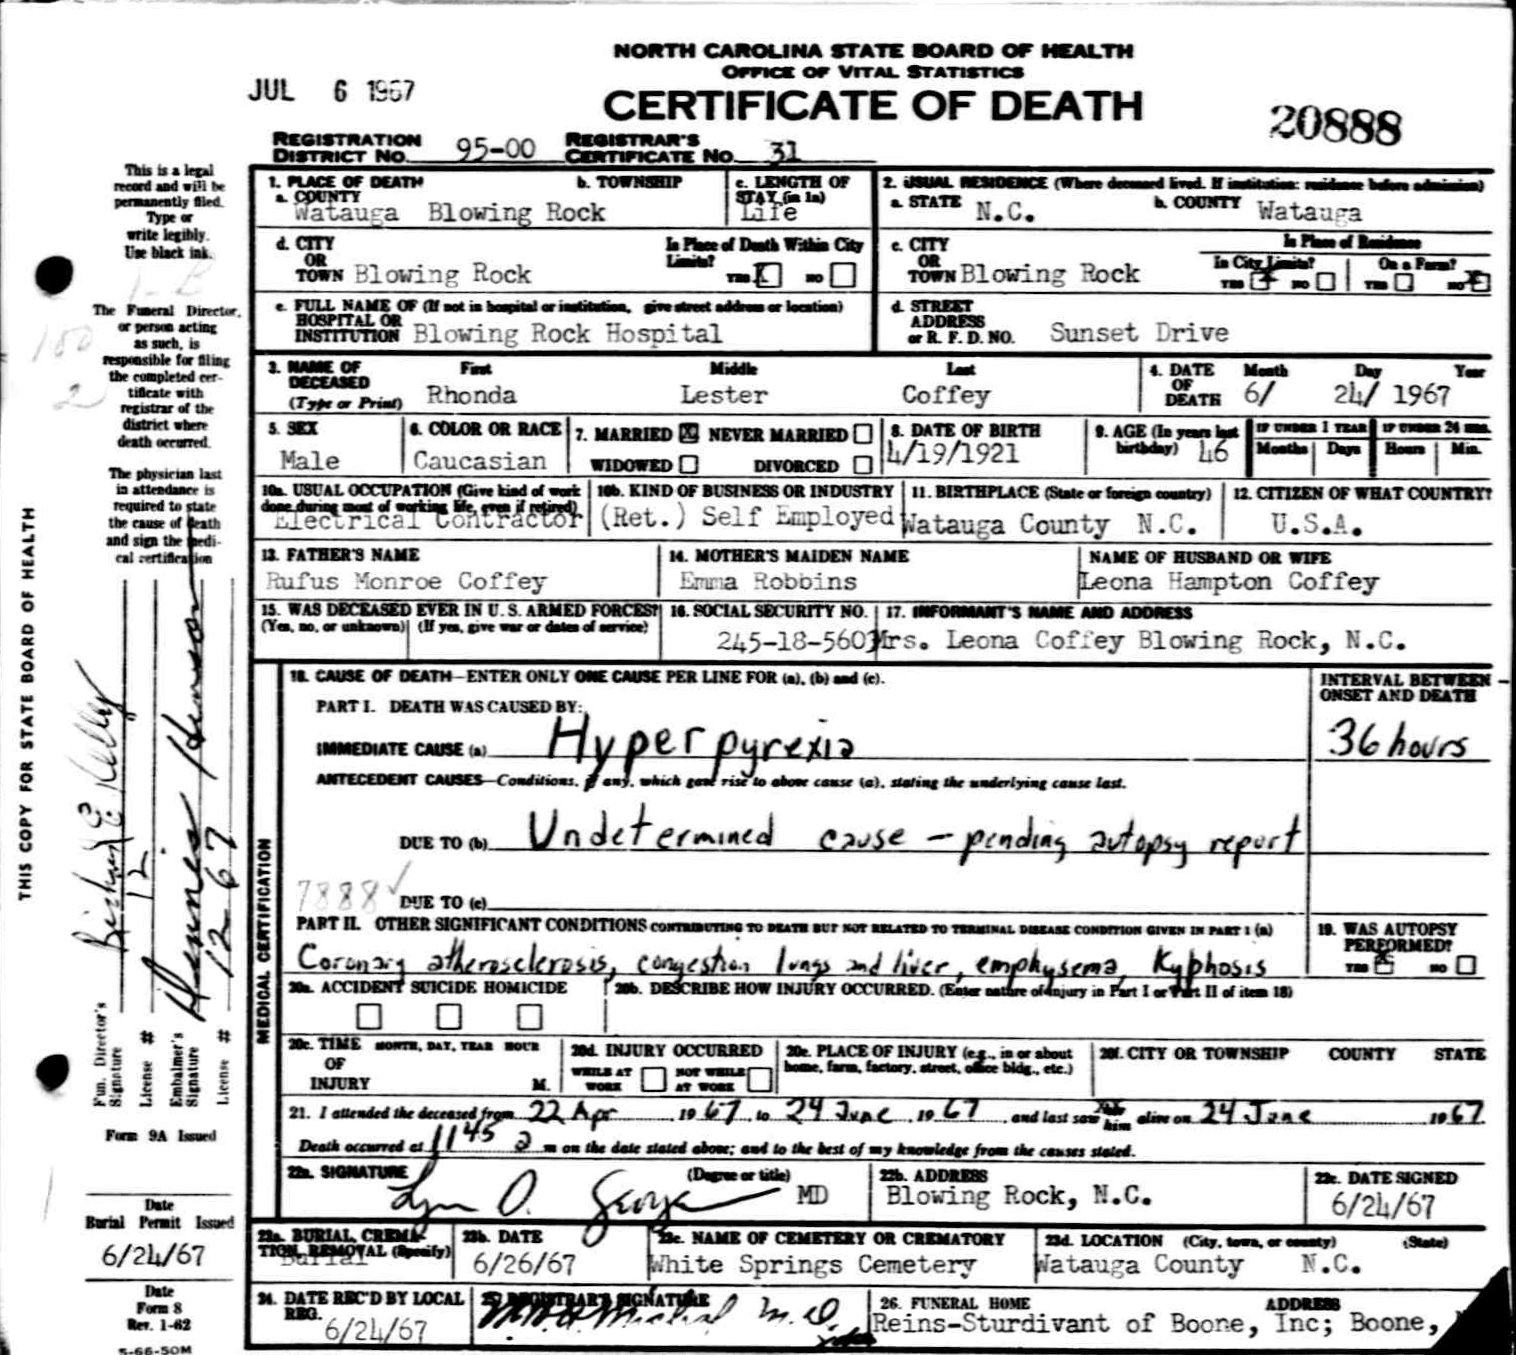 NORTH CAROLINA STATE BOARD OF HEALTH
OFFICE OF VITAL STATISTICS
JUL 6 1967
CERTIFICATE OF DEATH
20888
REGISTRATION DISTRICT NO. 95-00 REGISTRAR'S CERTIFICATE NO. 31
This is a legal record and will be permanently filed. Type or write legibly. Use black ink.
The Funeral Director, or person acting as such, is responsible for filing the completed certificate with registrar of the district where death occurred.
The physician last in attendance is required to state the cause of death and sign the medical certification
THIS COPY FOR STATE BOARD OF HEALTH
1. PLACE OF DEATH
a. COUNTY Watauga
b. TOWNSHIP Blowing Rock
c. LENGTH OF STAY (in 1a) Life
2. USUAL RESIDENCE (Where deceased lived. If institution: residence before admission)
a. STATE N.C.
b. COUNTY Watauga
d. CITY OR TOWN Blowing Rock
In Place of Death Within City Limits? YES X NO
c. CITY OR TOWN Blowing Rock
In Place of Residence
In City Limits? YES X NO
On a Farm? YES NO X
e. FULL NAME OF HOSPITAL OR INSTITUTION (If not in hospital or institution, give street address or location) Blowing Rock Hospital
d. STREET ADDRESS or R. F. D. NO. Sunset Drive
3. NAME OF DECEASED (Type or Print) First Rhonda Middle Lester Last Coffey
4. DATE OF DEATH Month Day Year 6/ 24/ 1967
5. SEX Male
6. COLOR OR RACE Caucasian
7. MARRIED X NEVER MARRIED WIDOWED DIVORCED
8. DATE OF BIRTH 4/19/1921
9. AGE (In years last birthday) 46
IF UNDER 1 YEAR Months Days
IF UNDER 24 HRS. Hours Min.
10a. USUAL OCCUPATION (Give kind of work done during most of working life, even if retired) Electrical Contractor
10b. KIND OF BUSINESS OR INDUSTRY (Ret.) Self Employed
11. BIRTHPLACE (State or foreign country) Watauga County N.C.
12. CITIZEN OF WHAT COUNTRY? U.S.A.
13. FATHER'S NAME Rufus Monroe Coffey
14. MOTHER'S MAIDEN NAME Emma Robbins
NAME OF HUSBAND OR WIFE Leona Hampton Coffey
15. WAS DECEASED EVER IN U. S. ARMED FORCES? (Yes, no, or unknown) (If yes, give war or dates of service)
16. SOCIAL SECURITY NO. 245-18-5603
17. INFORMANT'S NAME AND ADDRESS Mrs. Leona Coffey Blowing Rock, N.C.
MEDICAL CERTIFICATION
18. CAUSE OF DEATH—ENTER ONLY ONE CAUSE PER LINE FOR (a), (b) and (c).
INTERVAL BETWEEN ONSET AND DEATH
PART I. DEATH WAS CAUSED BY:
IMMEDIATE CAUSE (a) Hyperpyrexia 36 hours
ANTECEDENT CAUSES—Conditions, if any, which gave rise to above cause (a), stating the underlying cause last.
DUE TO (b) Undetermined cause – pending autopsy report
7888 ✓ DUE TO (c)
PART II. OTHER SIGNIFICANT CONDITIONS CONTRIBUTING TO DEATH BUT NOT RELATED TO TERMINAL DISEASE CONDITION GIVEN IN PART I (a)
Coronary atherosclerosis, congestion lungs and liver, emphysema, Kyphosis
19. WAS AUTOPSY PERFORMED? YES X NO
20a. ACCIDENT SUICIDE HOMICIDE
20b. DESCRIBE HOW INJURY OCCURRED. (Enter nature of injury in Part I or Part II of item 18)
20c. TIME OF INJURY MONTH, DAY, YEAR HOUR M.
20d. INJURY OCCURRED WHILE AT WORK NOT WHILE AT WORK
20e. PLACE OF INJURY (e.g., in or about home, farm, factory, street, office bldg., etc.)
20f. CITY OR TOWNSHIP COUNTY STATE
21. I attended the deceased from 22 Apr 1967 to 24 June, 1967 and last saw him alive on 24 June 1967
Death occurred at 11 45 a m on the date stated above; and to the best of my knowledge from the causes stated.
22a. SIGNATURE (Degree or title) MD
22b. ADDRESS Blowing Rock, N.C.
22c. DATE SIGNED 6/24/67
23a. BURIAL, CREMATION, REMOVAL (Specify) Burial
23b. DATE 6/26/67
23c. NAME OF CEMETERY OR CREMATORY White Springs Cemetery
23d. LOCATION (City, town, or county) (State) Watauga County N.C.
24. DATE REC'D BY LOCAL REG. 6/24/67
25. REGISTRAR'S SIGNATURE
26. FUNERAL HOME ADDRESS Reins-Sturdivant of Boone, Inc; Boone,
Fun. Director's Signature Richard E Kelly
License # 12
Embalmer's Signature
License # 1267
Form 9A Issued
Date Burial Permit Issued
6/24/67
Date
Form 8
Rev. 1-62
5-66-50M